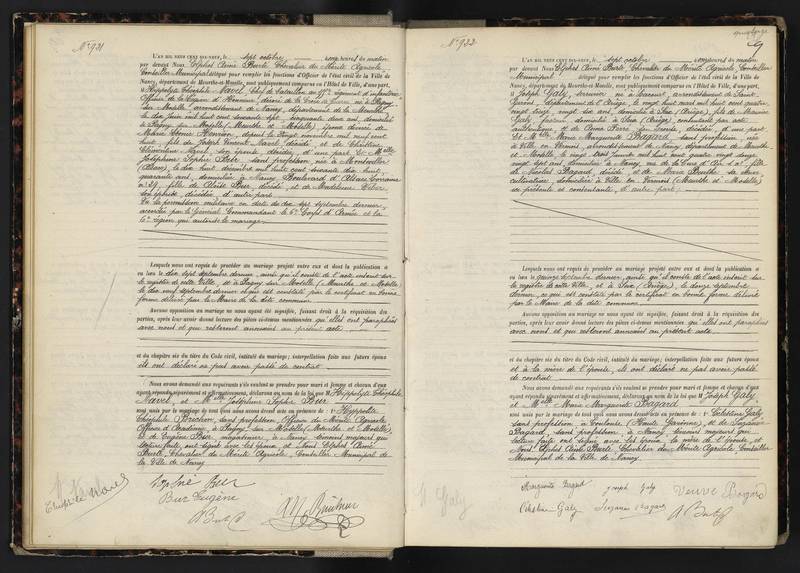 N° 921
L'AN MIL NEUF CENT DIX-NEUF, le sept octobre, onze heures du matin
par devant Nous Elophé Aimé Burté, Chevalier du Mérite Agricole,
Conseiller Municipal délégué pour remplir les fonctions d'Officier de l'état civil de la Ville de
Nancy, département de Meurthe-et-Moselle, sont publiquement comparus en l'Hôtel de Ville, d'une part,
M Hippolyte Théophile Navel, Chef de bataillon au régiment d'infanterie
Officier de la Légion d'Honneur, décoré de la Croix de Guerre, né à Pagny
sur Moselle, arrondissement de Nancy, département de la Meurthe,
le dix juin mil huit cent soixante sept, cinquante deux ans, domicilié
à Pagny sur Moselle, (Meurthe et Moselle), époux divorcé de
Marie
fils de Joseph Navel, décédé, et de Christine
son épouse décédée, d'une part. Et Melle
Joséphine Sophie Bur, sans profession, née à
(Alsace), le dix huit décembre mil huit cent soixante dix huit,
quarante ans, domiciliée à Nancy Boulevard d'Alsace Lorraine
n° 29, fille de Bur, décédé, et de Madeleine
son épouse décédée, d'autre part.
Vu la permission militaire en date du dix sept septembre dernier,
accordée par le Général Commandant le Corps d'Armée et la
région qui autorise le mariage.
Lesquels nous ont requis de procéder au mariage projeté entre eux et dont la publication a
eu lieu le dix sept septembre dernier, ainsi qu'il conste de l'acte inscrit sur
le registre de cette Ville, et à Pagny sur Moselle (Meurthe et Moselle)
le dix neuf septembre dernier ce qui est constaté par le certificat en bonne
forme délivré par le Maire de la dite commune.
Aucune opposition au mariage ne nous ayant été signifiée, faisant droit à la réquisition des
parties, après leur avoir donné lecture des pièces ci-dessus mentionnées qu'elles ont paraphées
avec nous et qui resteront annexées au présent acte
et du chapitre six du titre du Code civil, intitulé du mariage; interpellation faite aux futurs époux
ils ont déclaré ne pas avoir passé de contrat
Nous avons demandé aux requérants s'ils veulent se prendre pour mari et femme et chacun d'eux
ayant répondu séparément et affirmativement, déclarons au nom de la loi que M Hippolyte Théophile
Navel, et Melle Joséphine Sophie Bur
sont unis par le mariage de tout quoi nous avons dressé acte en présence de : 1° Hyppolite
Théophile sans profession, Officier du Mérite Agricole
Officier d'Académie, à Pagny sur Moselle, (Meurthe et Moselle)
et de Eugène Bur, magasinier, à Nancy, témoins majeurs qui
lecture faite, ont signé avec les époux et Nous Elophé Aimé
Burté, Chevalier du Mérite Agricole, Conseiller Municipal de
la Ville de Nancy
Bur Eugène
A Burté
N° 922
L'AN MIL NEUF CENT DIX-NEUF, le sept octobre, onze heures du matin
par devant Nous Elophé Aimé Burté, Chevalier du Mérite Agricole, Conseiller
Municipal délégué pour remplir les fonctions d'Officier de l'état civil de la Ville de
Nancy, département de Meurthe-et-Moselle, sont publiquement comparus en l'Hôtel de Ville, d'une part,
M Joseph Galy, né à arrondissement de Saint
Girons, département de l'Ariège, le vingt huit mars mil huit cent quatre
vingt onze, vingt huit ans, domicilié à (Ariège), fils de Maurice
Galy, domicilié à (Ariège), consentant par acte
authentique et de Anna son épouse, décédée, d'une part.
Et Melle Marie Marguerite Bagard, sans profession, née
à Ville en Vermois, arrondissement de Nancy, département de Meurthe
et Moselle, le vingt mil huit cent quatre vingt douze,
vingt sept ans, domiciliée à Nancy, rue fille
de Nicolas Bagard, décédé, et de Marie sa veuve
cultivatrice, domiciliée à Ville en Vermois (Meurthe et Moselle)
ci présente et consentante, d'autre part.
Lesquels nous ont requis de procéder au mariage projeté entre eux et dont la publication a
eu lieu le quinze septembre dernier, ainsi qu'il conste de l'acte inscrit sur
le registre de cette Ville, et à (Ariège), le douze septembre
dernier, ce qui est constaté par le certificat en bonne forme délivré
par le Maire de la dite commune.
Aucune opposition au mariage ne nous ayant été signifiée, faisant droit à la réquisition des
parties, après leur avoir donné lecture des pièces ci-dessus mentionnées qu'elles ont paraphées
avec nous et qui resteront annexées au présent acte
et du chapitre six du titre du Code civil, intitulé du mariage; interpellation faite aux futurs époux
et à la mère de l'épouse, ils ont déclaré ne pas avoir passé
de contrat
Nous avons demandé aux requérants s'ils veulent se prendre pour mari et femme et chacun d'eux
ayant répondu séparément et affirmativement, déclarons au nom de la loi que M Joseph Galy
et Melle Marie Marguerite Bagard
sont unis par le mariage de tout quoi nous avons dressé acte en présence de : 1° Célestine Galy
sans profession, à Toulouse (Haute Garonne), et de Suzanne
Bagard, sans profession, à Nancy, témoins majeurs qui
lecture faite ont signé avec les époux, la mère de l'épouse, et
Nous Elophé Aimé Burté Chevalier du Mérite Agricole Conseiller
Municipal de la Ville de Nancy.
Marguerite Bagard Joseph Galy Veuve Bagard
Célestine Galy Suzanne Bagard A Burté